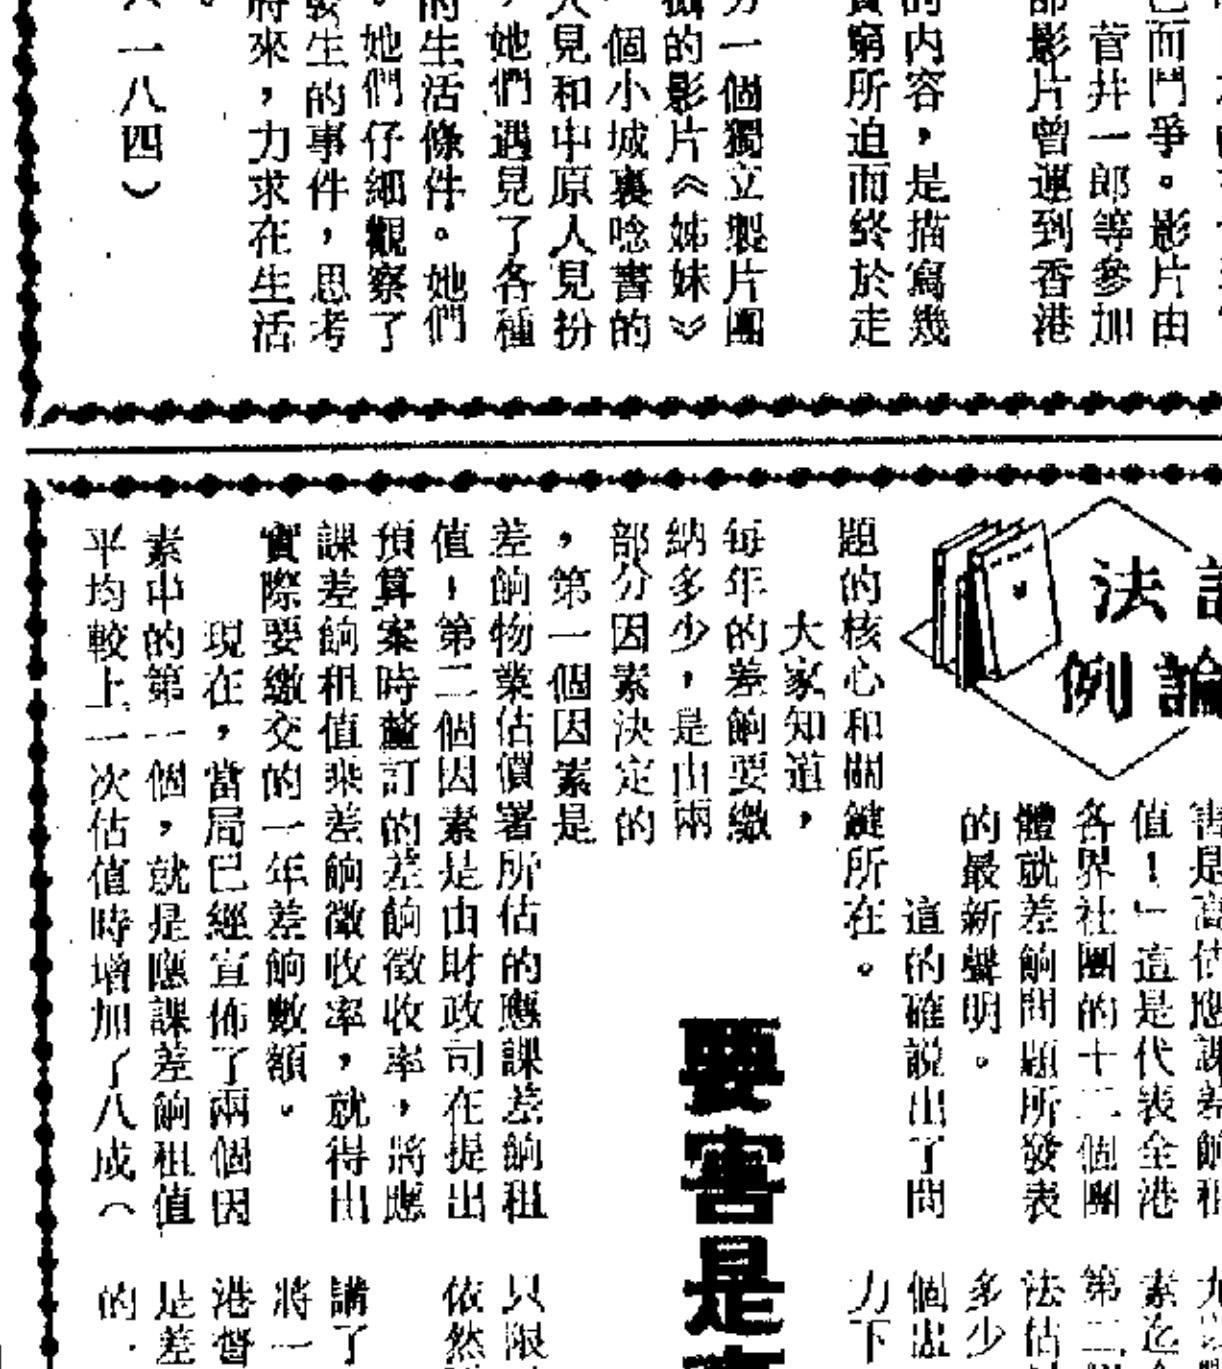 己而鬥爭。影片由
菅井一郎等參加
部影片曾運到香港
的內容，是描寫幾
貧窮所迫而終於走
一個獨立製片團
攝的影片《姊妹》
個小城裏唸書的
人見和中原人見扮
，她們遇見了各種
的生活條件。她們
。她們仔細觀察了
發生的事件，思考
將來，力求在生活
。
（一八四）
法
例論
害是高估應課差餉租
值！」這是代表全港
各界社團的十二個團
體就差餉問題所發表
的最新聲明。
這的確説出了問
題的核心和關鍵所在。
大家知道，
每年的差餉要繳
納多少，是由兩
部分因素決定的
，第一個因素是
差餉物業估價署所估的應課差餉租
值，第二個因素是由財政司在提出
預算案時釐訂的差餉徵收率，將應
課差餉租值乘差餉徵收率，就得出
實際要繳交的一年差餉數額。
現在，當局已經宣佈了兩個因
素中的第一個，就是應課差餉租值
平均較上一次估值時增加了八成（
要害是
素迄
第二
法估
多少
個出
力下
只限
依然
講了
將一
港督
是差
的